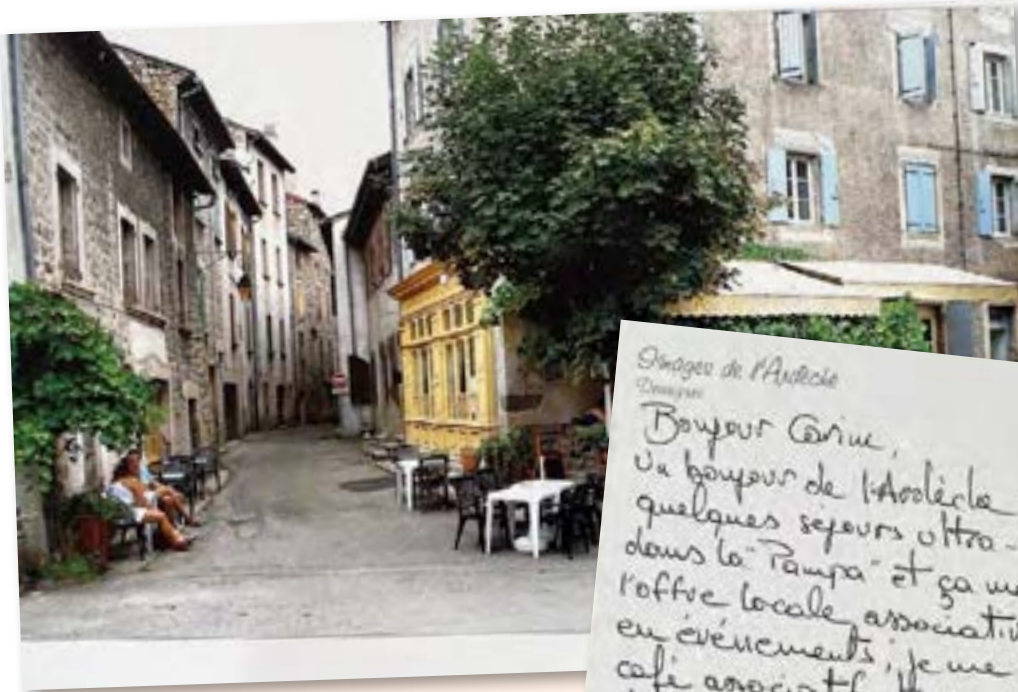 Images de l'Ardèche
Desaignes
Bonjour Carine,
Un bonjour de l'Ardèche
quelques séjours ultra-
dans la "Pampa" et ça me
l'offre locale, associativ
en événements, je me
café associatif